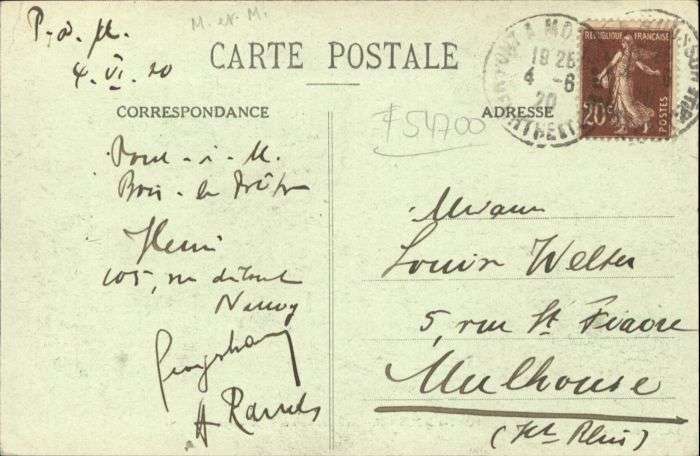 P-à-M.
4.VI.20
M. et M.
CARTE POSTALE
CORRESPONDANCE
ADRESSE
$54700
RÉPUBLIQUE FRANÇAISE
20c
POSTES
PONT A MO
19 25
4 -6
20
Pont-à-M.
Bois-le-Prêtre
Henri
105, rue
Nancy
Madame
Louise Welter
5, rue St Fiacre
Mulhouse
(Ht Rhin)